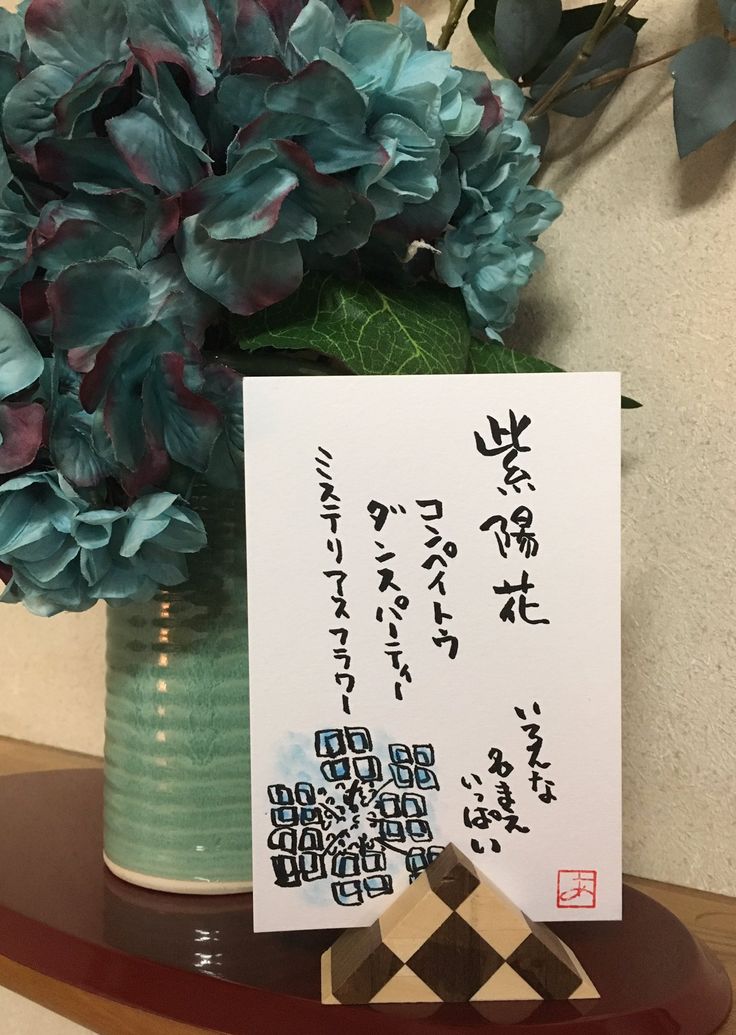 紫陽花
コンペイトウ
ダンスパーティー
ミステリアスフラワー
いろんな
名まえ
いっぱい
あ